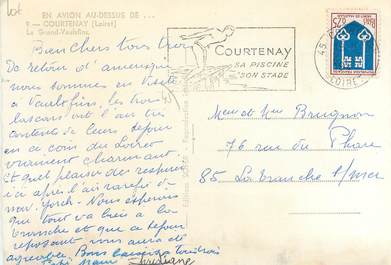 EN AVION AU-DESSUS DE ...
9 - COURTENAY (Loiret)
Le Grand-Vaulfins
Bien chers tous trois
De retour d'amérique
nous sommes en visite
à Vaulfins, les trois
lascars ont l'air très
contents de leur séjour
en ce coin du Loiret
vraiment charmant.
Et quel plaisir de respirer
ici après l'air raréfié de
new. York. Nous espérons
que tout va bien à la
Tranche et que ce séjour
reposant vous aura été
agréable. Bons baisers à tous trois
COURTENAY
SA PISCINE
SON STADE
45
LOIRET
Mr et Mme Brugnon
76 rue du Phare
85 La Tranche s/mer